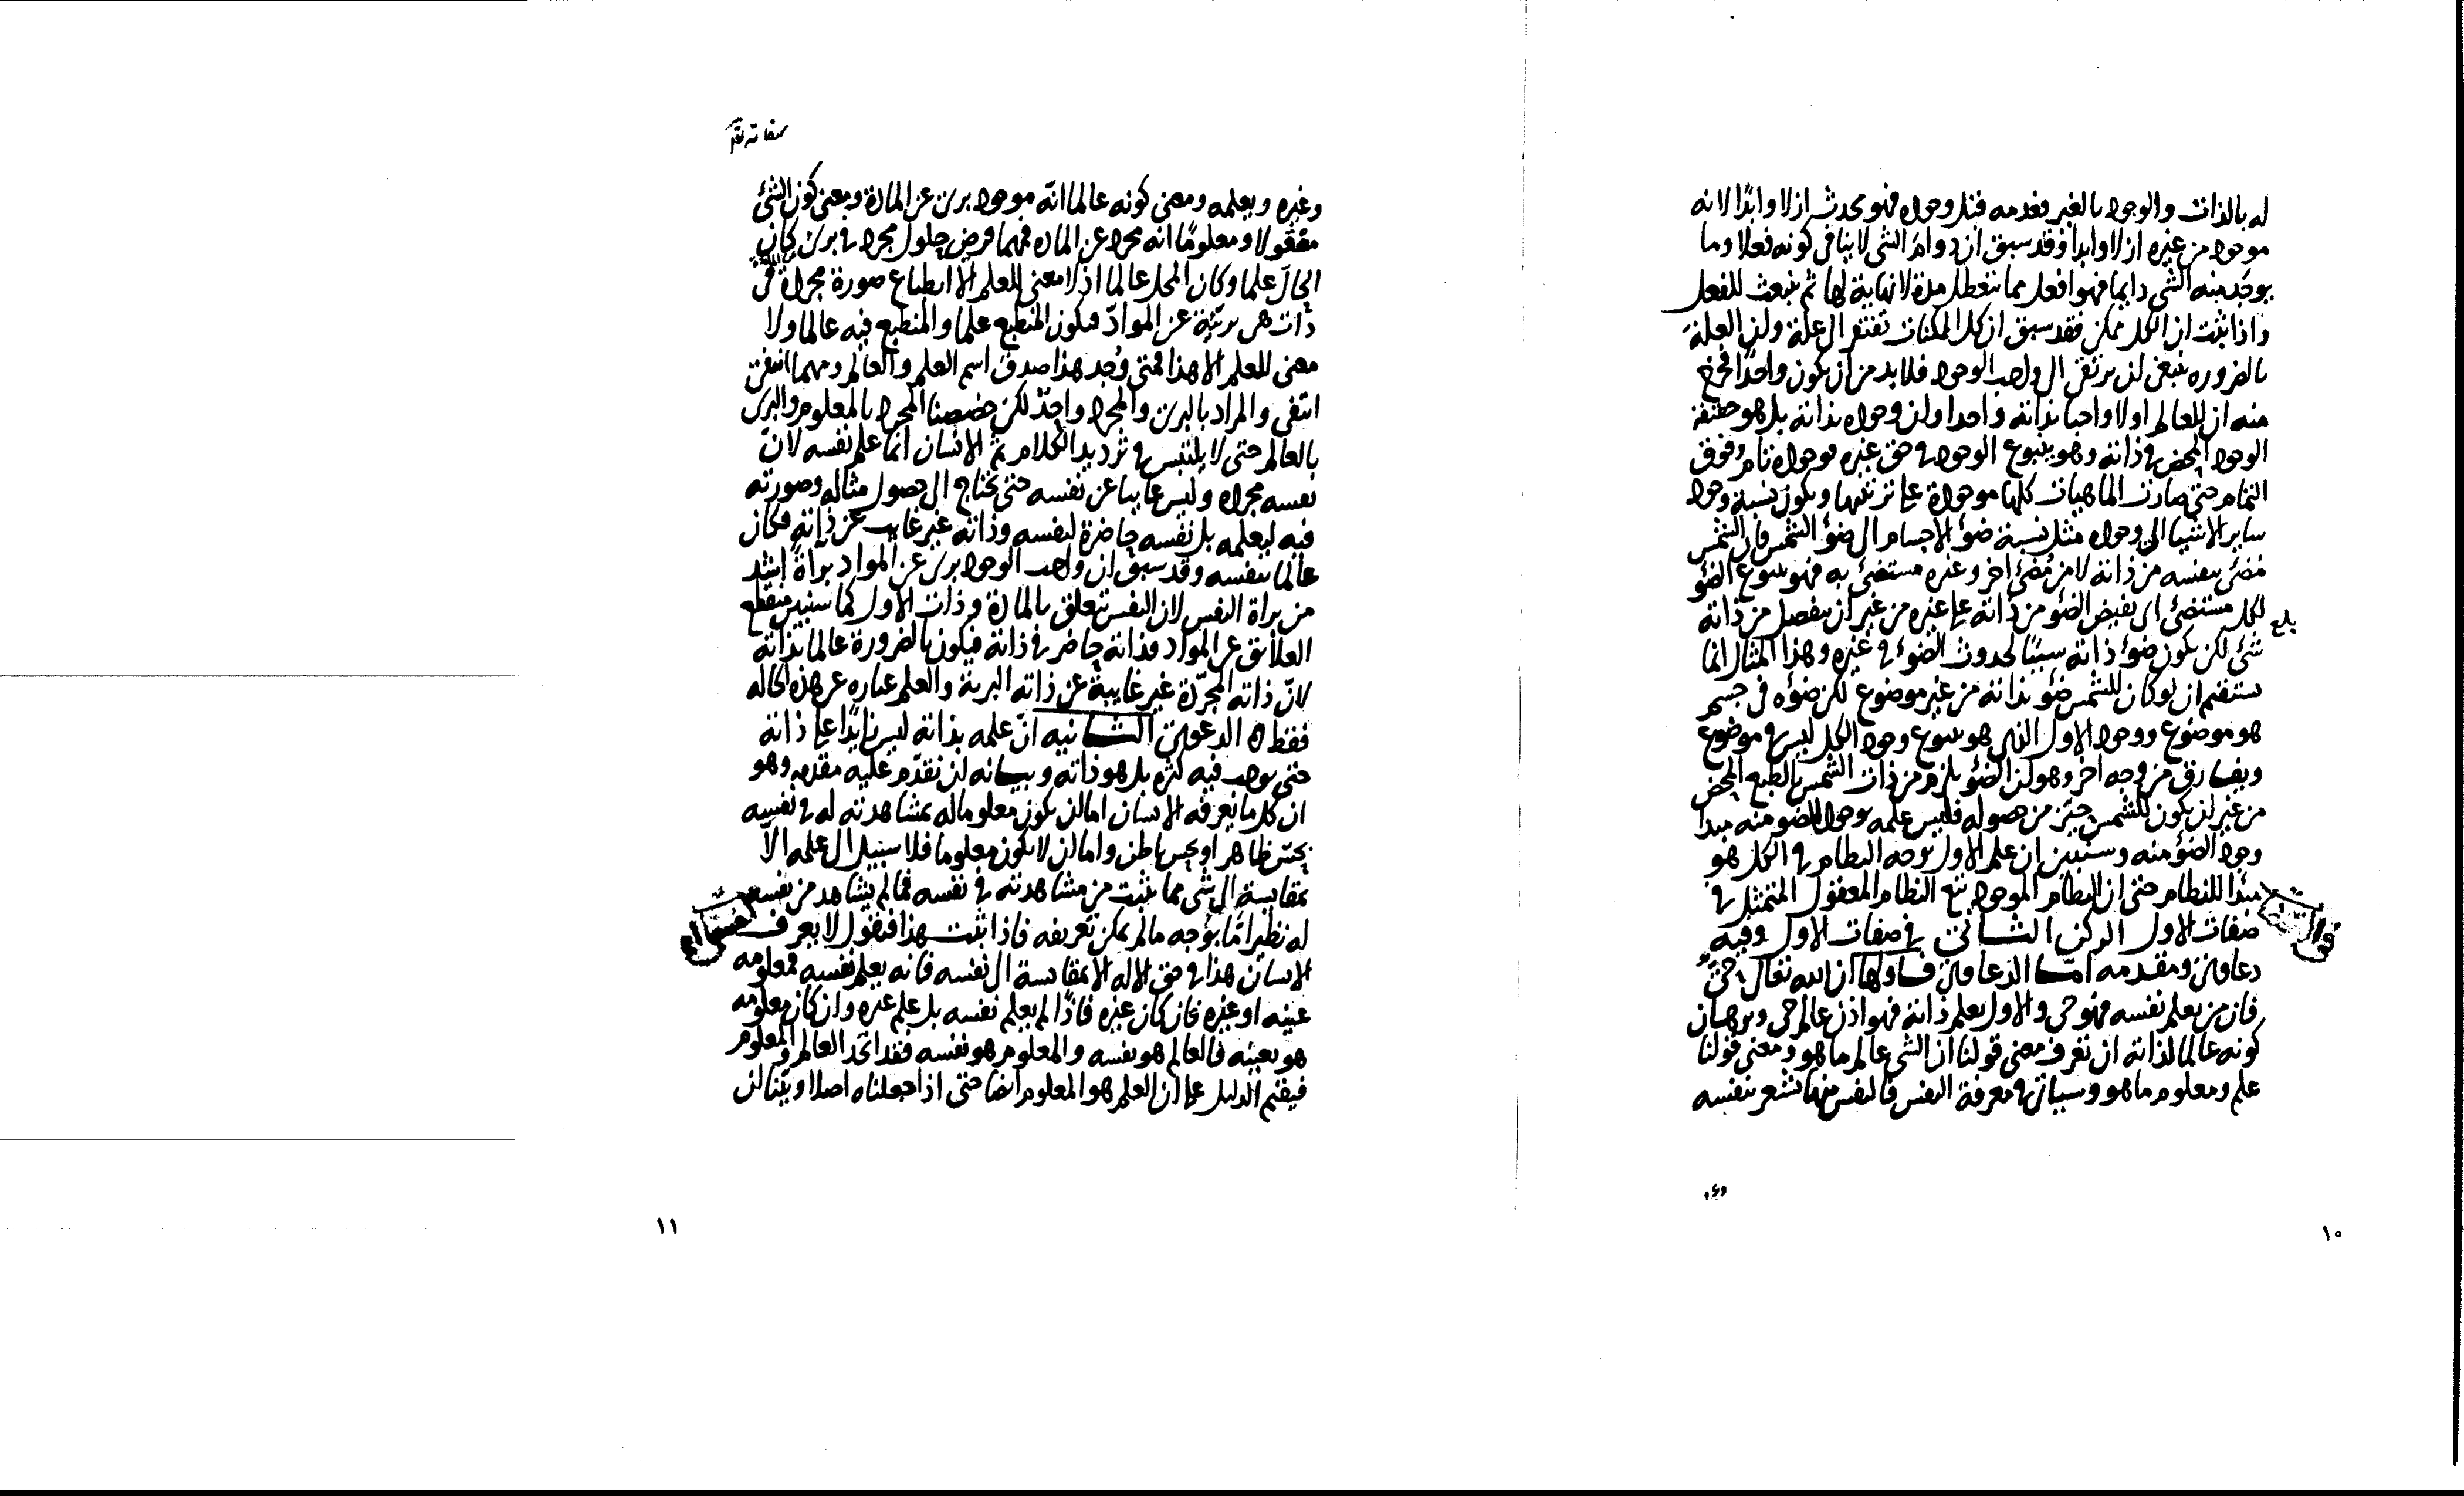 له بالذات والوجود بالغير فعدمه قبل وجوده فهو محدث ازلا وابدًا لانه
موجود من غيره ازلا وابدا وقد سبق ان دوام الشى لا ينافى كونه فعلا وما
يوجد منه الشى دايما فهو افعل مما تتعطل مدة لا نهاية لها ثم ينبعث للفعل
واذا ثبت ان الكل ممكن فقد سبق ان كل الممكنات تفتقر الى علة ولن العلة
بالضروره ينبغى لن يرتقى الى واجب الوجود فلا بد من ان يكون واحدًا فخرج
منه ان للعالم اولا واجبا بذاته واحدا ولن وجوده بذاته بل هو حقيقة
الوجود المحض فى ذاته وهو ينبوع الوجود فى حق غيره فوجوده تام وفوق
التمام حتى صارت الماهيات كلها موجودة على ترتيبها ويكون نسبة وجود
ساير الاشيا الى وجوده مثل نسبة ضؤ الاجسام الى ضؤ الشمس فان الشمس
مضئ بنفسه من ذاته لا من مُضئ اخر وغيره مستضئ به فهو ينبوع الضؤ
لكل مستضئ اى يفيض الضؤ من ذاته على غيره من غير ان ينفصل من ذاته
بلغ
شئ لكن يكون ضؤ ذاته سببًا لحدوث الضؤ فى غيره وهذا المثال انما
يستقيم ان لو كان للشمس ضؤ بذاته من غير موضوع لكن ضؤه فى جسم
هو موضوع ووجود الاول الذى هو ينبوع وجود الكل ليس فى موضوع
ويفارق من وجه اخر وهو لن الضؤ يلزم من ذات الشمس بالطبع المحض
من غير لن يكون للشمس خبر من حصوله فليس علمه بوجود الضو منه مبدا
وجود الضؤ منه وسنبين ان علم الاول بوجه النظام فى الكل هو
مبدا للنظام حتى ان النظام الموجود تبع النظام المعقول المتمثل فى
صفات الاول الركن الثانى فى صفات الاول وفيه
دعاوى ومقدمه امّا الدعاوى فاولها ان الله تعالى حىّ
فان من يعلم نفسه فهو حى والاول يعلم ذاته فهو اذن عالم حى وبرهان
كونه عالما لذاته ان تعرف معنى قولنا ان الشى عالم ما هو ومعنى قولنا
علم ومعلوم ما هو وسياتى فى معرفة النفس فالنفس منها تشعر بنفسه
١٠
وغيره ويعلمه ومعنى كونه عالما انّه موجود برىٔ عن المادة ومعنى كون الشئ
معقولا ومعلومًا انه مجرد عن الماده فمهما فرض حلول مجرد فى برىٔ كان
الحالّ علما وكان المحل عالما اذ لا معنى للعلم الا انطباع صورة مجردة فى
ذات هى بريّة عن الموادّ فيكون المنطبع علما والمنطبع فيه عالما ولا
معنى للعلم الا هذا فمتى وُجد هذا صدق اسم العلم والعالم ومهما انتفى
انتفى والمراد بالبرىٔ والمجرد واحدٌ لكن خصصنا المجرد بالمعلوم والبرىٔ
بالعالم حتى لا يلتبس فى ترديد الكلام ثم الانسان انما علم نفسه لانّ
نفسه مجرده وليس غايبا عن نفسه حتى تحتاج الى حصول مثاله وصورته
فيه ليعلمه بل نفسه حاضرة لنفسه وذاته غير غايب عن ذاته فكان
عالما بنفسه وقد سبق ان واجب الوجود برىٔ عن المواد براةً اشد
من براة النفس لان النفس تتعلق بالمادة وذات الاول كما سنبين منقطع
العلايق عن المواد فذاته حاضر فى ذاته فيكون بالضرورة عالما بذاته
لانّ ذاته المجرّدة غير غايبة عن ذاته البرية والعلم عباره عن هذه الحاله
فقط ه الدعوى الثانيه انّ علمه بذاته ليس زايدًا على ذاته
حتى يوجب فيه كثره بل هو ذاته وبيانه لن نقدّم عليه مقدمه وهو
ان كل ما يعرفه الانسان اما لن يكون معلوما له بمشاهدته له فى نفسه
بحسّ ظاهر او بحس باطن واما لن لا يكون معلوما فلا سبيل الى علمه الّا
بمقايسة الى شى مما يثبت من مشاهدته فى نفسه فما لم يشاهد من نفسه
له نظيرا مّا بوجه ما لم يمكن تعريفه فاذا ثبت هذا فنقول لا يعرف
الانسان هذا فى حق الاله الا بمقايسة الى نفسه فانه يعلم نفسه فمعلومه
عينه او غيره فان كان غيره فاذًا لم يعلم نفسه بل علم غيره وان كان معلومه
هو بعينه فالعالم هو نفسه والمعلوم هو نفسه فقد اتّحد العالم والمعلوم
فيقيم الدليل على ان العلم هو المعلوم ايضا حتى اذا جعلناه اصلا وبيّنا لن
١١